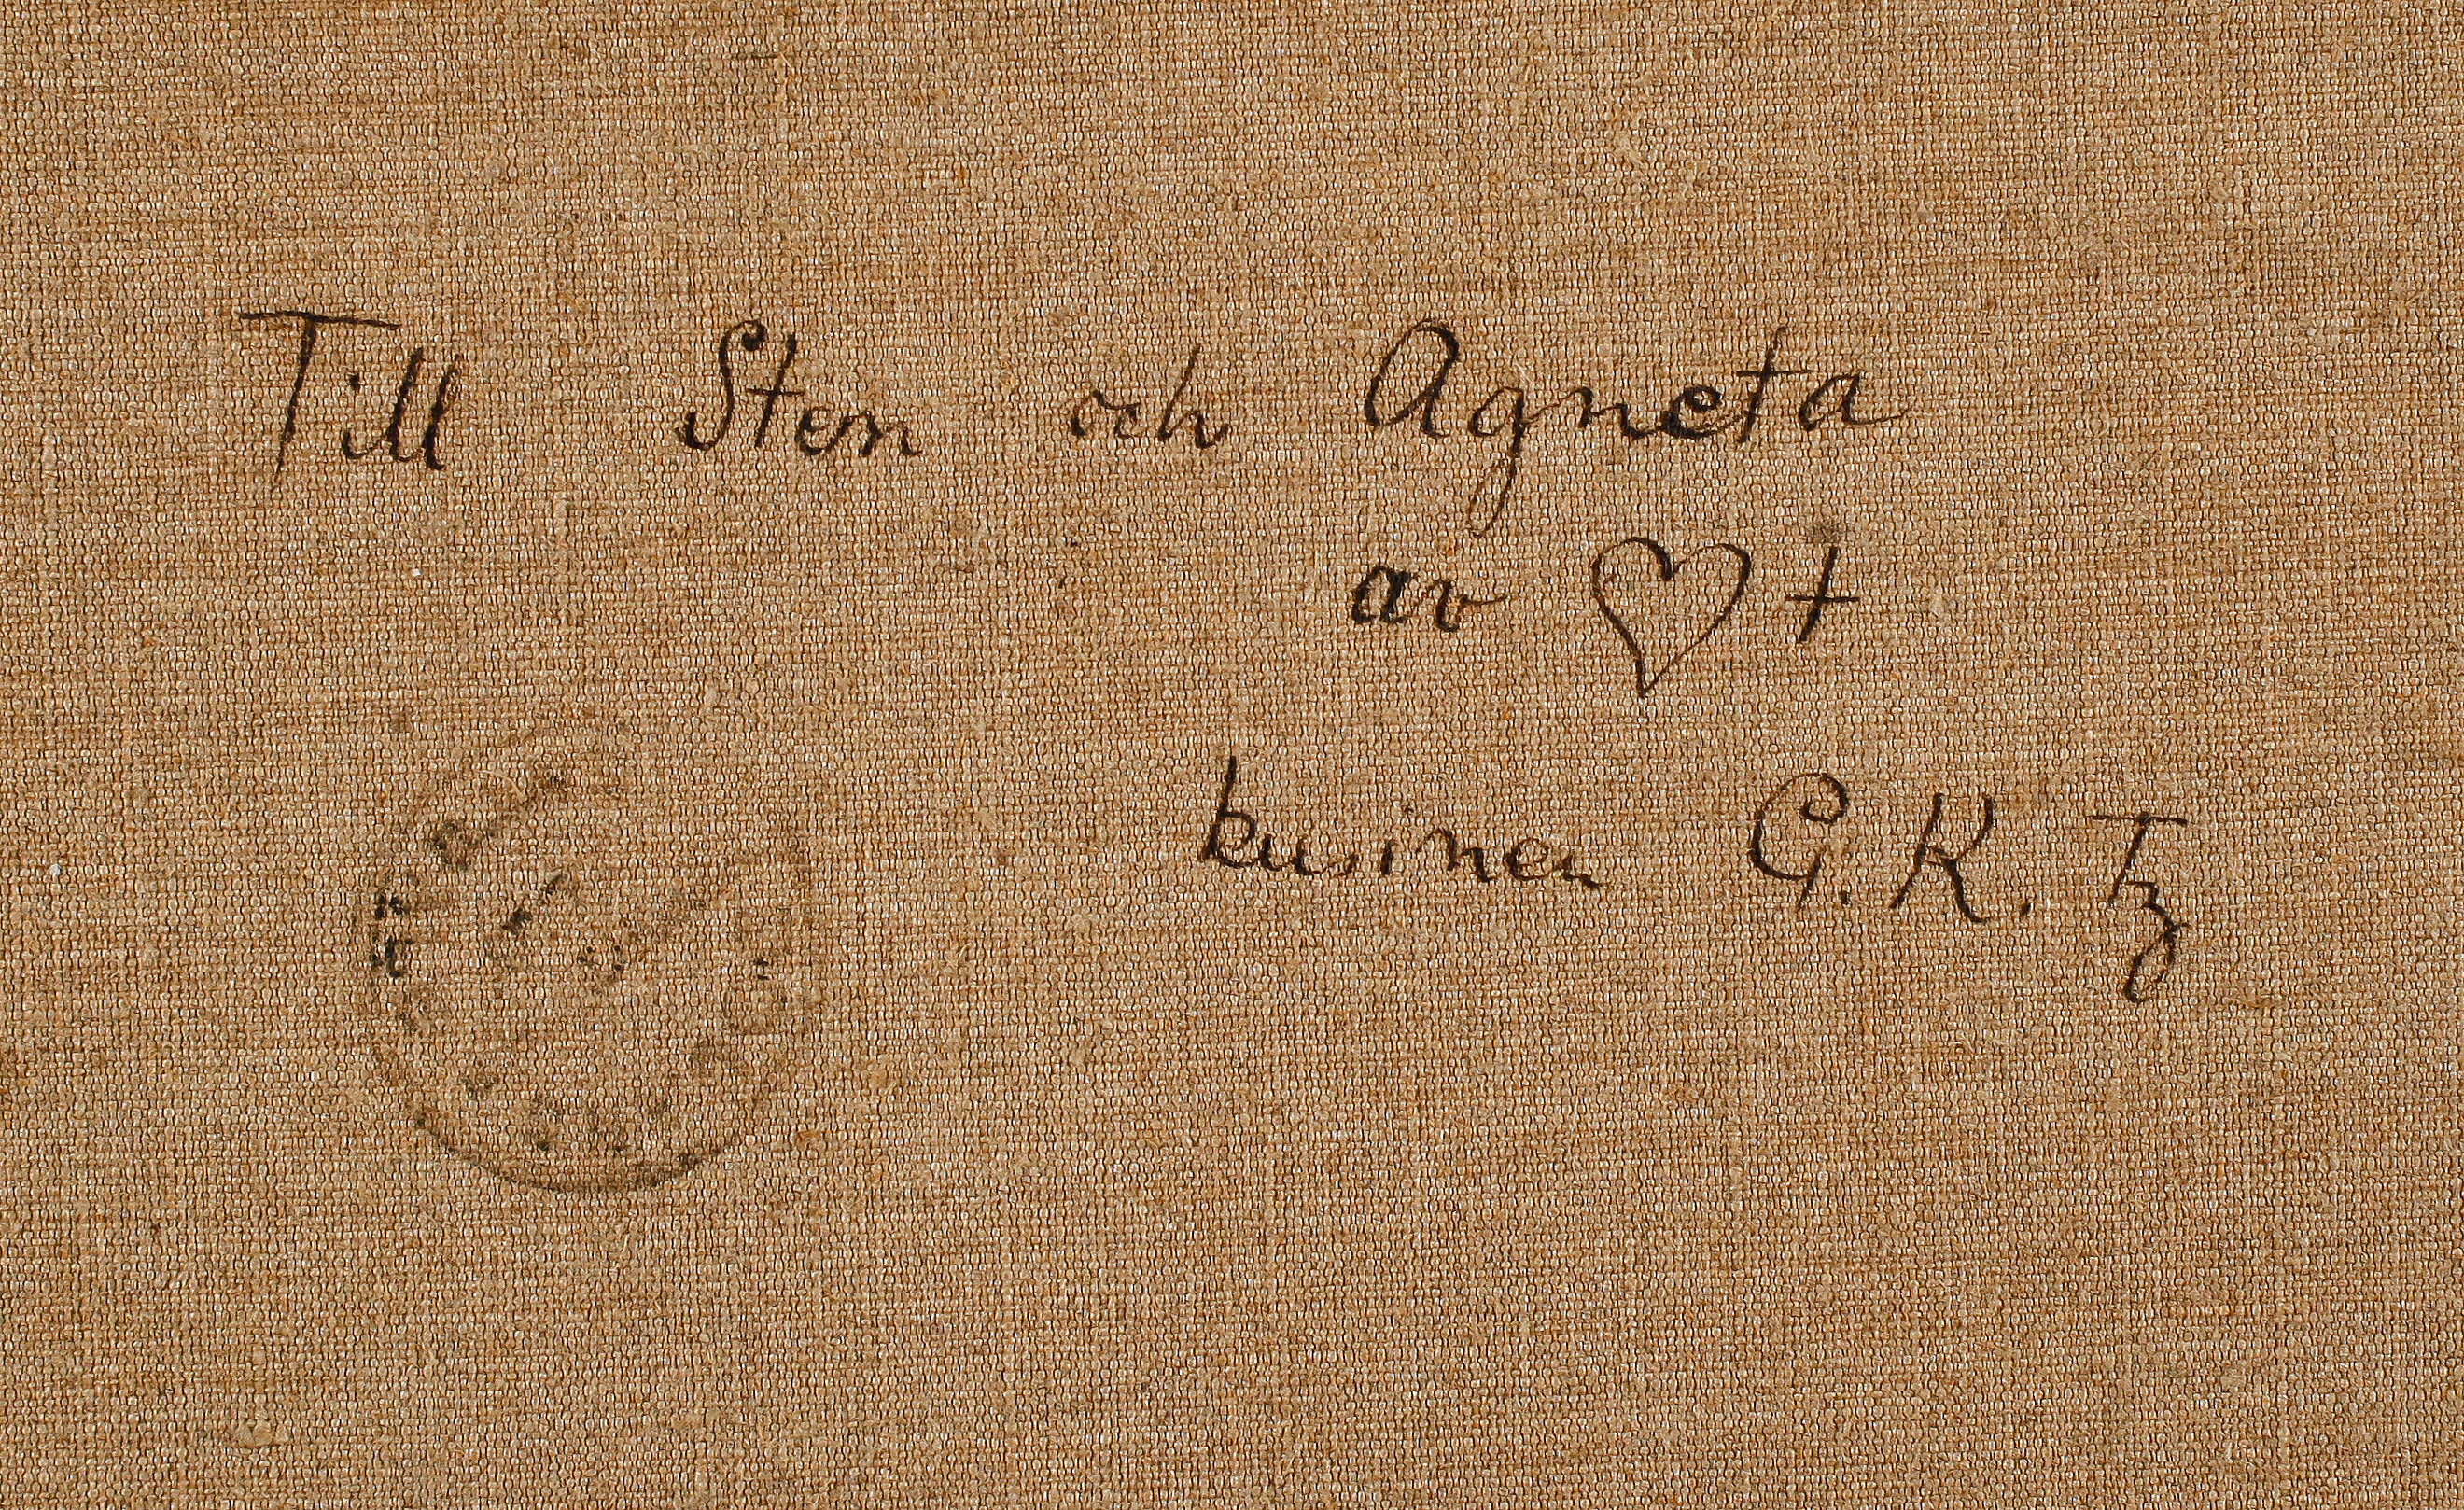 Till Sten och Agneta
av ♡ +
kusinen G.K. Tz